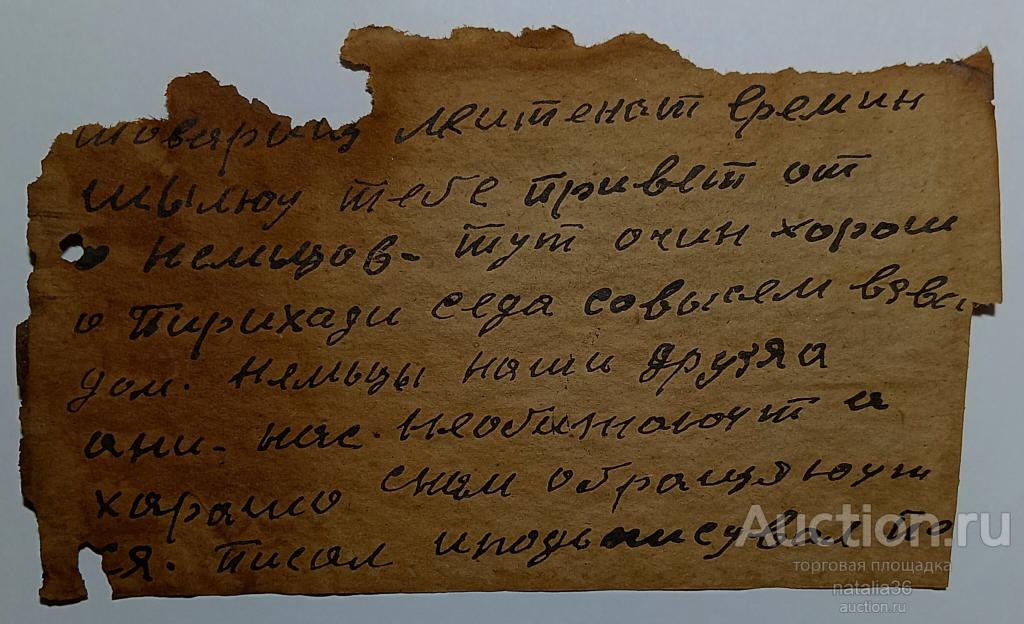 товарищ лейтенат Еремин
шылюу тебе привет от
немьцов- тут очин хорош
о пирихади седа совысем взвс
дом. Нямьцы наши друзя а
ани- нас. необижают и
харашо снам обращяюут
ся. писал иподьписувал Пе
Auction.ru
торговая площадка
natalia36
auction.ru